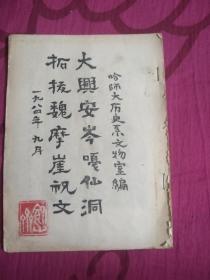 哈师大历史系文物室编
大興安岺嘎仙洞
拓拔魏摩崖祝文
一九八四年九月